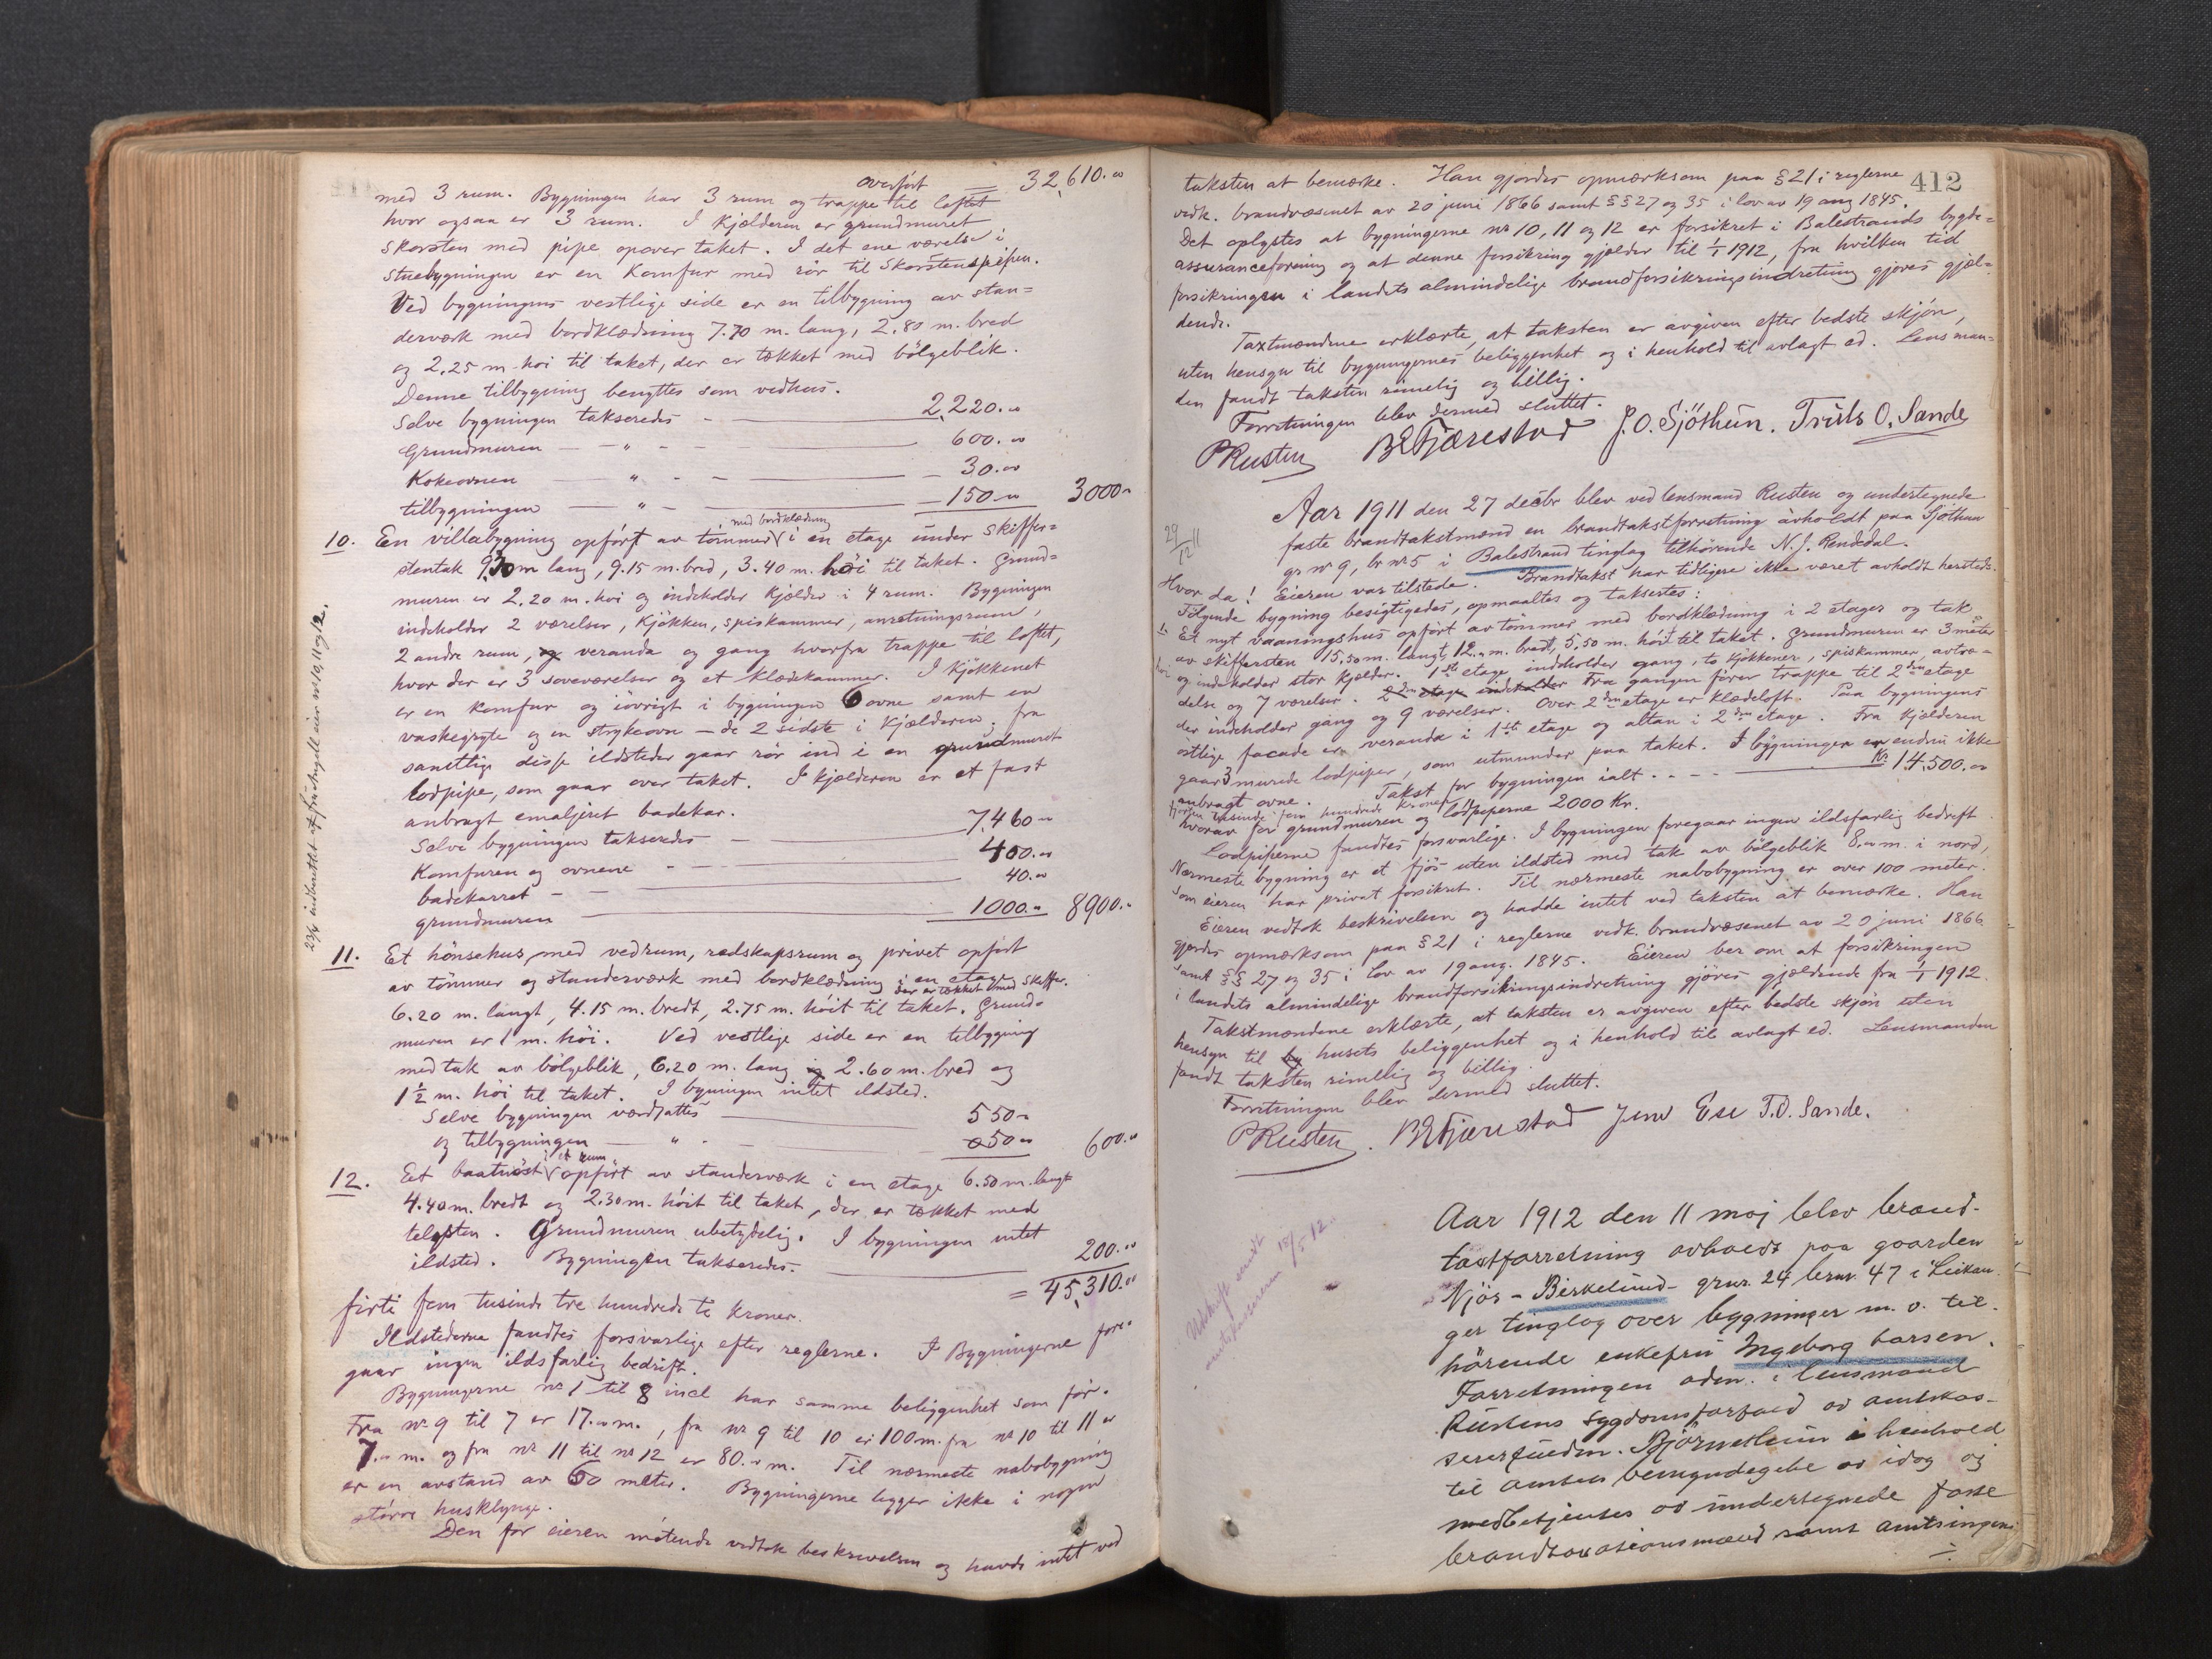 overført = 32,610.00
med 3 rum. Bygningen har 3 rum og trappe til loftet
hvor ogsaa er 3 rum. I kjælderen er grundmuret
skorsten med pipe opover taket. I det ene værelse i
stuebygningen er en komfur med rör til skorstenspipen.
Ved bygningens vestlige side er en tilbygning av stan=
derværk med bordklædning 7.70 m. lang, 2.80 m. bred
og 2.25 m høi til taket, der er tækket med bölgeblik.
Denne tilbygning benyttes som vedhus.
Selve bygningen takseredes — 2,220.00
Grundmuren — " — 600.00
Kokeovnen — " — 30.00
tilbygningen — " — 150.00 3000.-
med bordklædning
10. En villabygning opført av tömmer i en etage under skiffer=
stentak 9.30 m lang, 9.15 m. bred, 3.40 m. höi til taket. Grund=
muren er 2.20 m. høi og indeholder kjælder i 4 rum. Bygningen
indeholder 2 værelser, kjøkken, spiskammer, anretningsrum,
2 andre rum, og veranda og gang hvorfra trappe til loftet,
hvor der er 3 soveværelser og et klædekammer. I kjøkkenet
er en komfur og iövrigt i bygningen 6 ovne samt en
vaskegryte og en strykeovn — de 2 sidste i kjælderen. Fra
samtlige disse ildsteder gaar rör ind i en grundmuret
lodpipe, som gaar over taket. I kjælderen er et fast
anbragt emaljeret badekar.
Selve bygningen takseredes — 7,460.-
Komfuren og ovnene — 400.00
badekarret — 40.00
grundmuren — 1000.- 8900.-
11. Et hönsehus med vedrum, redskapsrum og privet opført
av tömmer og standerværk med bordklædning i en etage
der er tækket med skiffer.
6.20 m. langt, 4.15 m. bredt, 2.75 m. höit til taket. Grund=
muren er 1 m. höi. Ved vestlige side er en tilbygning
med tak av bölgeblik, 6.20 m. lang og 2.60 m. bred og
1½ m. höi til taket. I bygningen intet ildsted.
Selve bygningen værdsattes — 550.-
og tilbygningen — " — 50.- 600.00
i et rum
12. Et baatnöst opført av standerværk i en etage 6.50 m. langt
4.40 m. bredt og 2.30 m. höit til taket, der er tækket med
teglsten. Grundmuren ubetydelig. I bygningen intet
ildsted. Bygningen takseredes. — 200.00
= 45,310.00
firti fem tusinde tre hundrede ti kroner.
Ildstederne fandtes forsvarlige efter reglerne. I Bygningerne fore=
gaar ingen ildsfarlig bedrift.
Bygningerne nr 1 til 8 incl har samme beliggenhet som før.
Fra nr 9 til 7 er 17.00 m., fra nr 9 til 10 er 100 m. fra nr 10 til 11 er
7.00 m. og fra nr 11 til nr 12 er 80.00 m. Til nærmeste nabobygning
er en avstand av 60 meter. Bygningerne ligger ikke i nogen
större husklynge.
Den for eieren mötende vedtok beskrivelsen og havde intet ved
nr 10, 11 og 12.
412
taksten at bemærke. Han gjordes opmærksom paa § 21 i reglerne
vedk. brandvæsenet av 20 juni 1866 samt §§ 27 og 35 i lov av 19 aug 1845.
Det oplystes at bygningerne nr 10, 11 og 12 er forsikret i Balestrands bygde=
assuranceforening og at denne forsikring gjælder til 1/1 1912, fra hvilken tid
forsikringen i landets almindelige brandforsikringsindretning gjøres gjæl=
dende.
Taxtmændene erklærte, at taksten er avgiven efter bedste skjön,
uten hensyn til bygningernes beliggenhet og i henhold til avlagt ed. Lensman=
den fandt taksten rimelig og billig.
Forretningen blev dermed sluttet.
P Rusten B E Fjærestad J. O. Sjöthun. Truls O. Sande
Aar 1911 den 27 decbr blev ved lensmand Rusten og undertegnede
faste brandtakstmænd en brandtakstforretning avholdt paa Sjöthun
gr nr 9, br nr 5 i Balestrand tinglag tilhørende N. J. Rendedal.
29/12 11
Hvor da! Eieren var tilstede. Brandtakst har tidligere ikke været avholdt hersteds.
Fölgende bygning besigtigedes, opmaaltes og taksertes:
1. Et nyt vaaningshus opført av tömmer med bordklædning i 2 etager og tak
av skiffersten 15.50 m. langt, 12.00 m. bredt, 5.50 m. höit til taket. Grundmuren er 3 meter
höi og indeholder stor kjælder. 1ste etage indeholder gang, to kjökkener, spiskammer, avtræ=
delse og 7 værelser. 2den etage indeholder Fra gangen förer trappe til 2den etage
der indeholder gang og 9 værelser. Over 2den etage er klædeloft. Paa bygningens
östlige facade er veranda i 1ste etage og altan i 2den etage. Fra kjælderen
gaar 3 murede lodpiper, som utmunder paa taket. I bygningen er endnu ikke
anbragt ovne. Takst for bygningen ialt — Kr. 14,500.00
fjorten tusinde fem hundrede kroner
hvorav for grundmuren og lodpiperne 2000 Kr.
Lodpiperne fandtes forsvarlige. I bygningen foregaar ingen ildsfarlig bedrift.
Nærmeste bygning er et fjös uten ildsted med tak av bölgeblik 8.00 m. i nord,
som eieren har privat forsikret. Til nærmeste nabobygning er over 100 meter.
Eieren vedtok beskrivelsen og hadde intet ved taksten at bemærke. Han
gjordes opmærksom paa § 21 i reglerne vedk. brandvæsenet av 20 juni 1866
samt §§ 27 og 35 i lov av 19 aug. 1845. Eieren ber om at forsikringen
i landets almindelige brandforsikringsindretning gjöres gjældende fra 1/1 1912.
Takstmændene erklærte, at taksten er avgiven efter bedste skjön uten
hensyn til by husets beliggenhet og i henhold til avlagt ed. Lensmanden
fandt taksten rimelig og billig.
Forretningen blev dermed sluttet.
P Rusten. B E Fjærestad Jens Ese T. O. Sande.
Utskrift sendt
15/5 12.
Aar 1912 den 11 mai blev brand-
taxtforretning avholdt paa gaarden
Njös - Birkelund - grnr. 24 brnr. 47 i Leikan-
ger tinglag over bygninger m. v. til-
hörende enkefru Ingeborg Larsen.
Forretningen adm. i lensmand
Rustens sygdomsforfald av amtskas-
sererfuldm. Björnethun i henhold
til amtets bemyndigelse av idag og
medbetjentes av undertegnede faste
brandtaxationsmænd samt amtsingeni